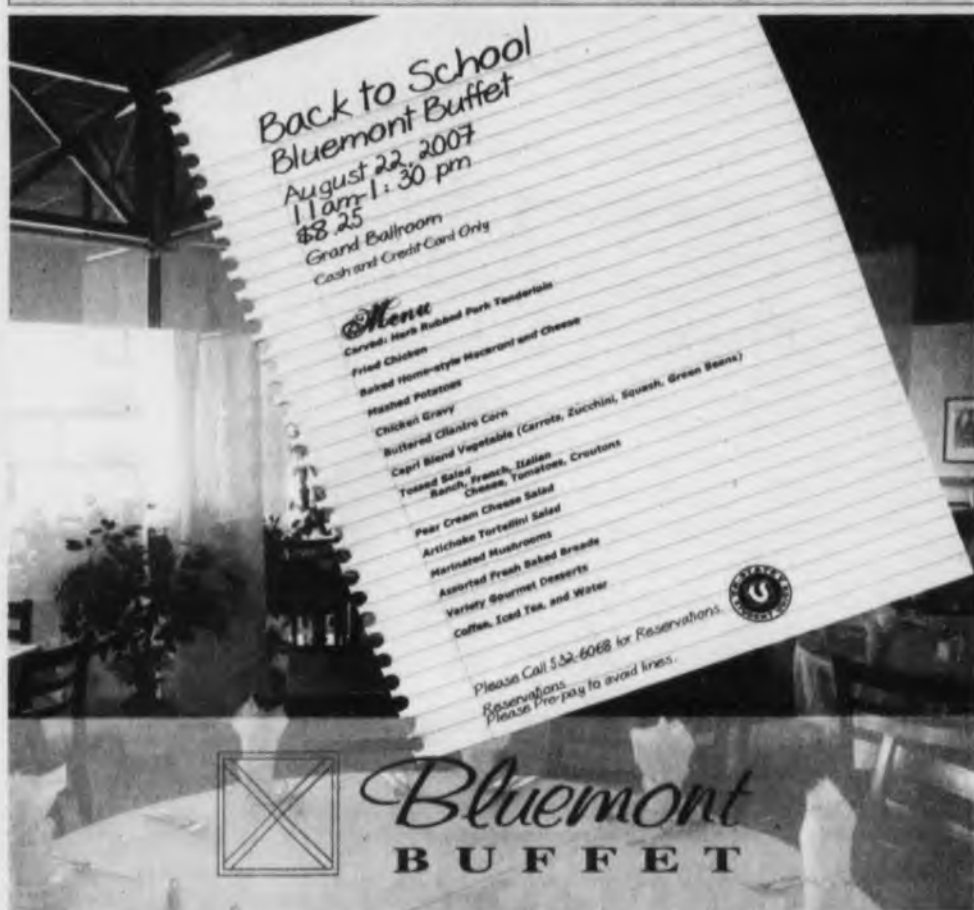 Back to School
Bluemont Buffet
August 22, 2007
11am-1:30 pm
$8.25
Grand Ballroom
Cash and Credit Card Only
Menu
Carved: Herb Rubbed Pork Tenderloin
Fried Chicken
Baked Home-style Macaroni and Cheese
Mashed Potatoes
Chicken Gravy
Buttered Cilantro Corn
Capri Blend Vegetable (Carrots, Zucchini, Squash, Green Beans)
Tossed Salad
Ranch, French, Italian
Cheese, Tomatoes, Croutons
Pear Cream Cheese Salad
Artichoke Tortellini Salad
Marinated Mushrooms
Assorted Fresh Baked Breads
Variety Gourmet Desserts
Coffee, Iced Tea, and Water
Please Call 532-6068 for Reservations.
Reservations
Please Pre-pay to avoid lines.
Bluemont
BUFFET